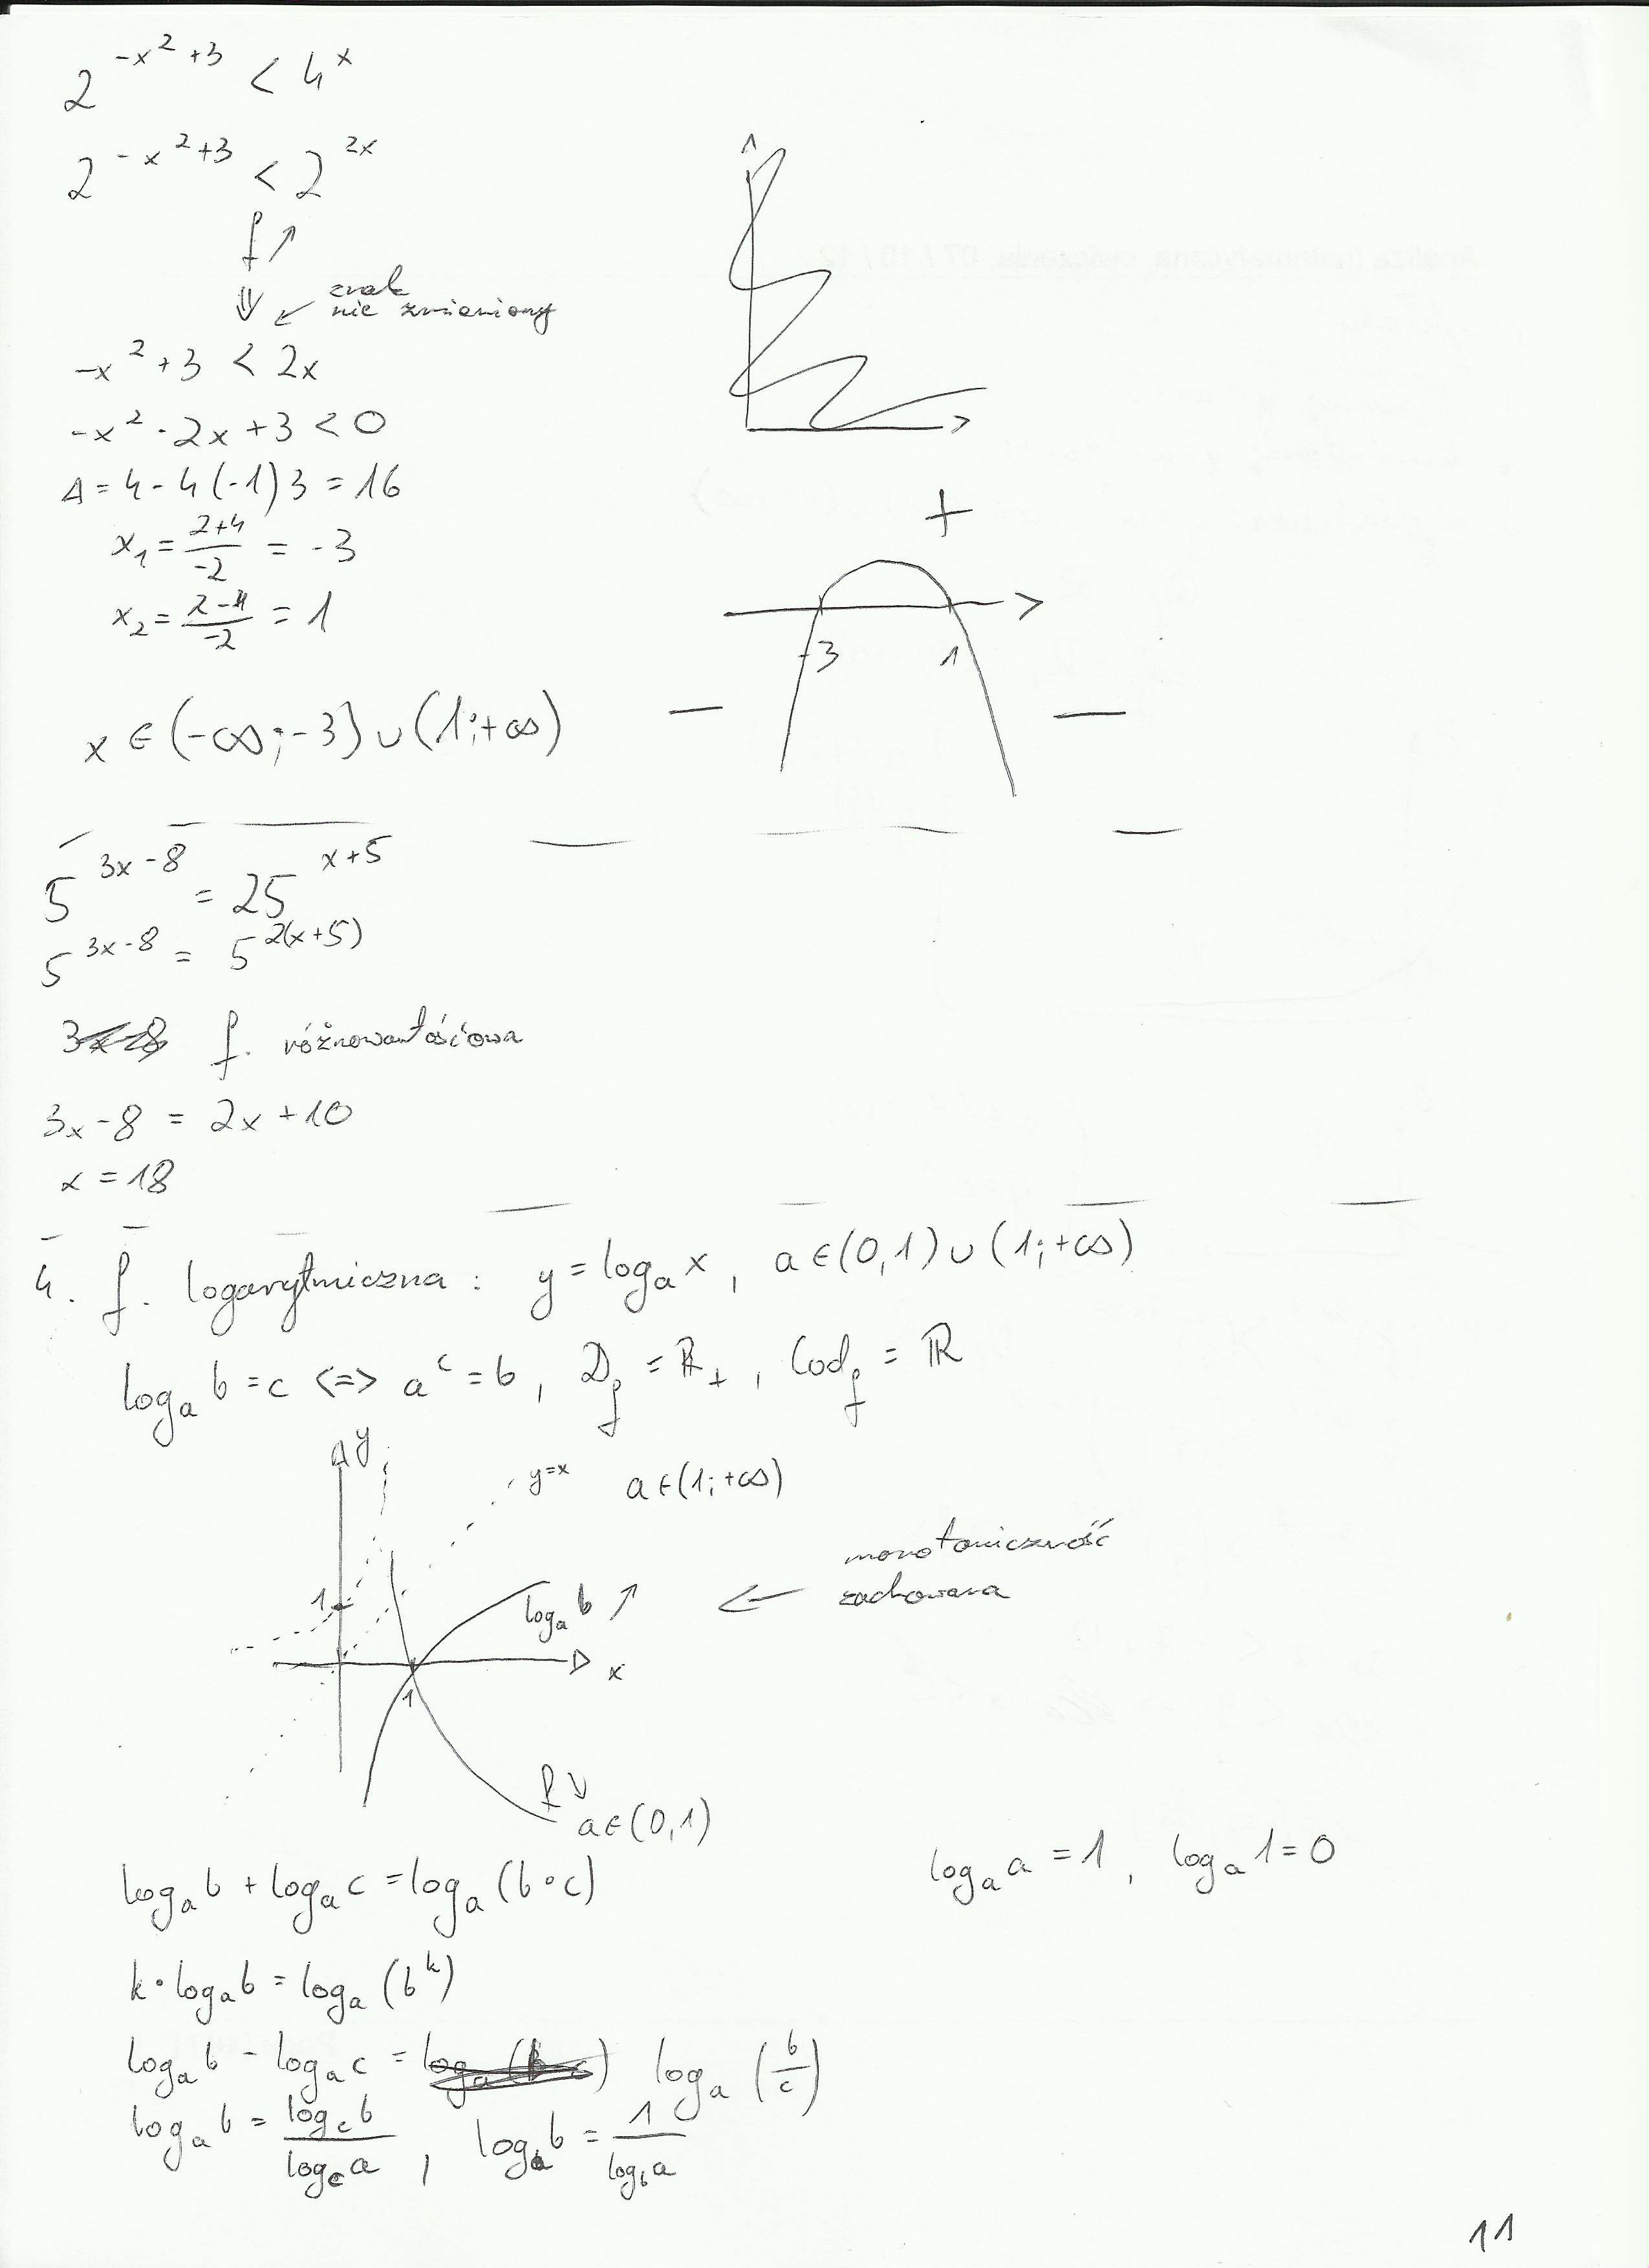 2^{-x^2+3} < 4^x
2^{-x^2+3} < 2^{2x}
f ↗
⇓ ↙ znak
nie zmieniony
-x^2+3 < 2x
-x^2-2x+3 < 0
Δ = 4-4(-1)3 = 16
x_1 = \frac{2+4}{-2} = -3
x_2 = \frac{2-4}{-2} = 1
+
-3 1
x ∈ (-∞;-3) ∪ (1;+∞)
— —
5^{3x-8} = 25^{x+5}
5^{3x-8} = 5^{2(x+5)}
f. różnowartościowa
3x-8 = 2x+10
x = 18
4. f. logarytmiczna : y = log_a x , a ∈ (0,1) ∪ (1;+∞)
log_a b = c <=> a^c = b , D_f = ℝ_+ , Cod_f = ℝ
y
y=x a ∈ (1;+∞)
monotoniczność
zachowana
1
log_a b ↗ ←
x
1
f ↘
a ∈ (0,1)
log_a b + log_a c = log_a (b·c)
log_a a = 1 , log_a 1 = 0
k·log_a b = log_a (b^k)
log_a b - log_a c = log_a (\frac{b}{c})
log_a b = \frac{log_c b}{log_c a} , log_a b = \frac{1}{log_b a}
11